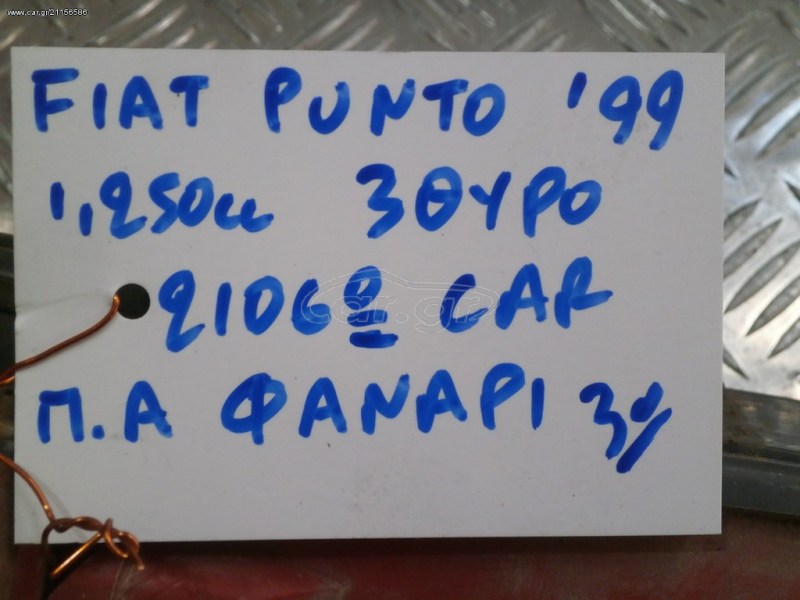 www.car.gr/21156586
FIAT PUNTO '99
1,250cc 3ΘΥΡΟ
2106 CAR
Π.Α ΦΑΝΑΡΙ